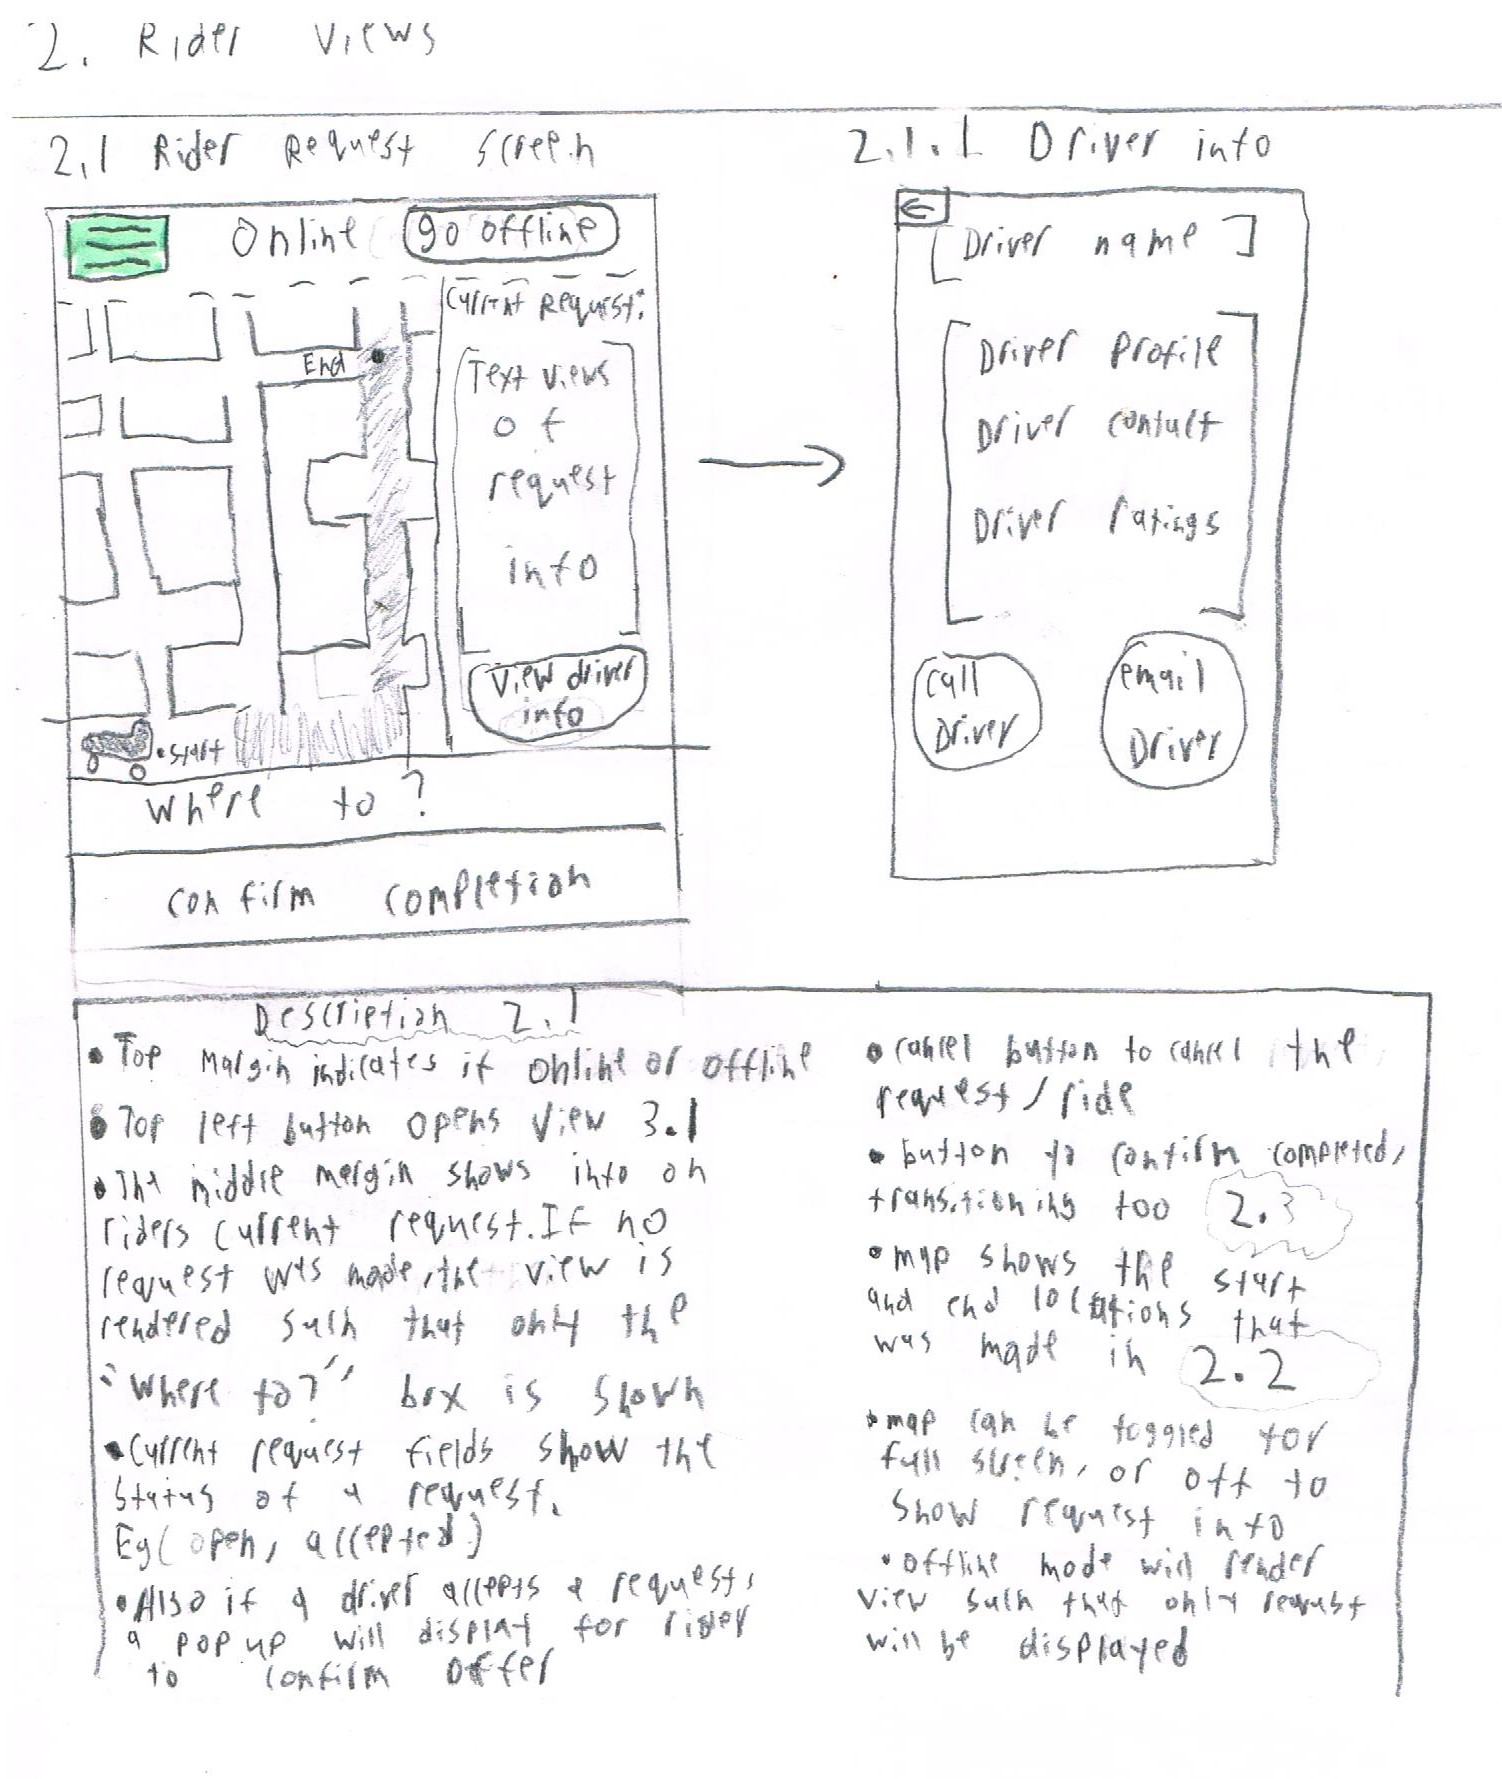 2. Rider Views
2.1 Rider Request Screen
Online
go offline
Current Request:
End
Text views
of
request
info
View driver
info
start
Where to?
confirm completion
2.1.1 Driver info
[Driver name]
Driver Profile
Driver contact
Driver ratings
call
Driver
email
Driver
Description 2.1
• Top Margin indicates if online or offline
• Top left button opens View 3.1
• The middle mergin shows info on
riders current request. If no
request was made, the view is
rendered such that only the
"Where to?" box is shown
• Current request fields show the
status of a request.
Eg( open, accepted)
• Also if a driver accepts a request,
a pop up will display for rider
to confirm offer
• cancel button to cancel the
request/ride
• button to confirm completed,
transitioning too 2.3
• map shows the start
and end locations that
was made in 2.2
• map can be toggled for
full screen, or off to
show request info
• offline mode will render
view such that only request
will be displayed